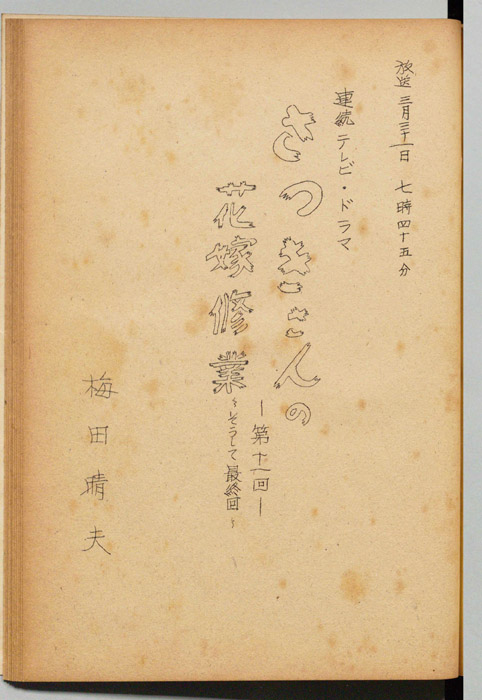 放送 三月三十一日 七時四十五分
連続テレビ・ドラマ
さつきさんの
花嫁修業
―第十一回―
〻そうして最終回〻
梅田晴夫